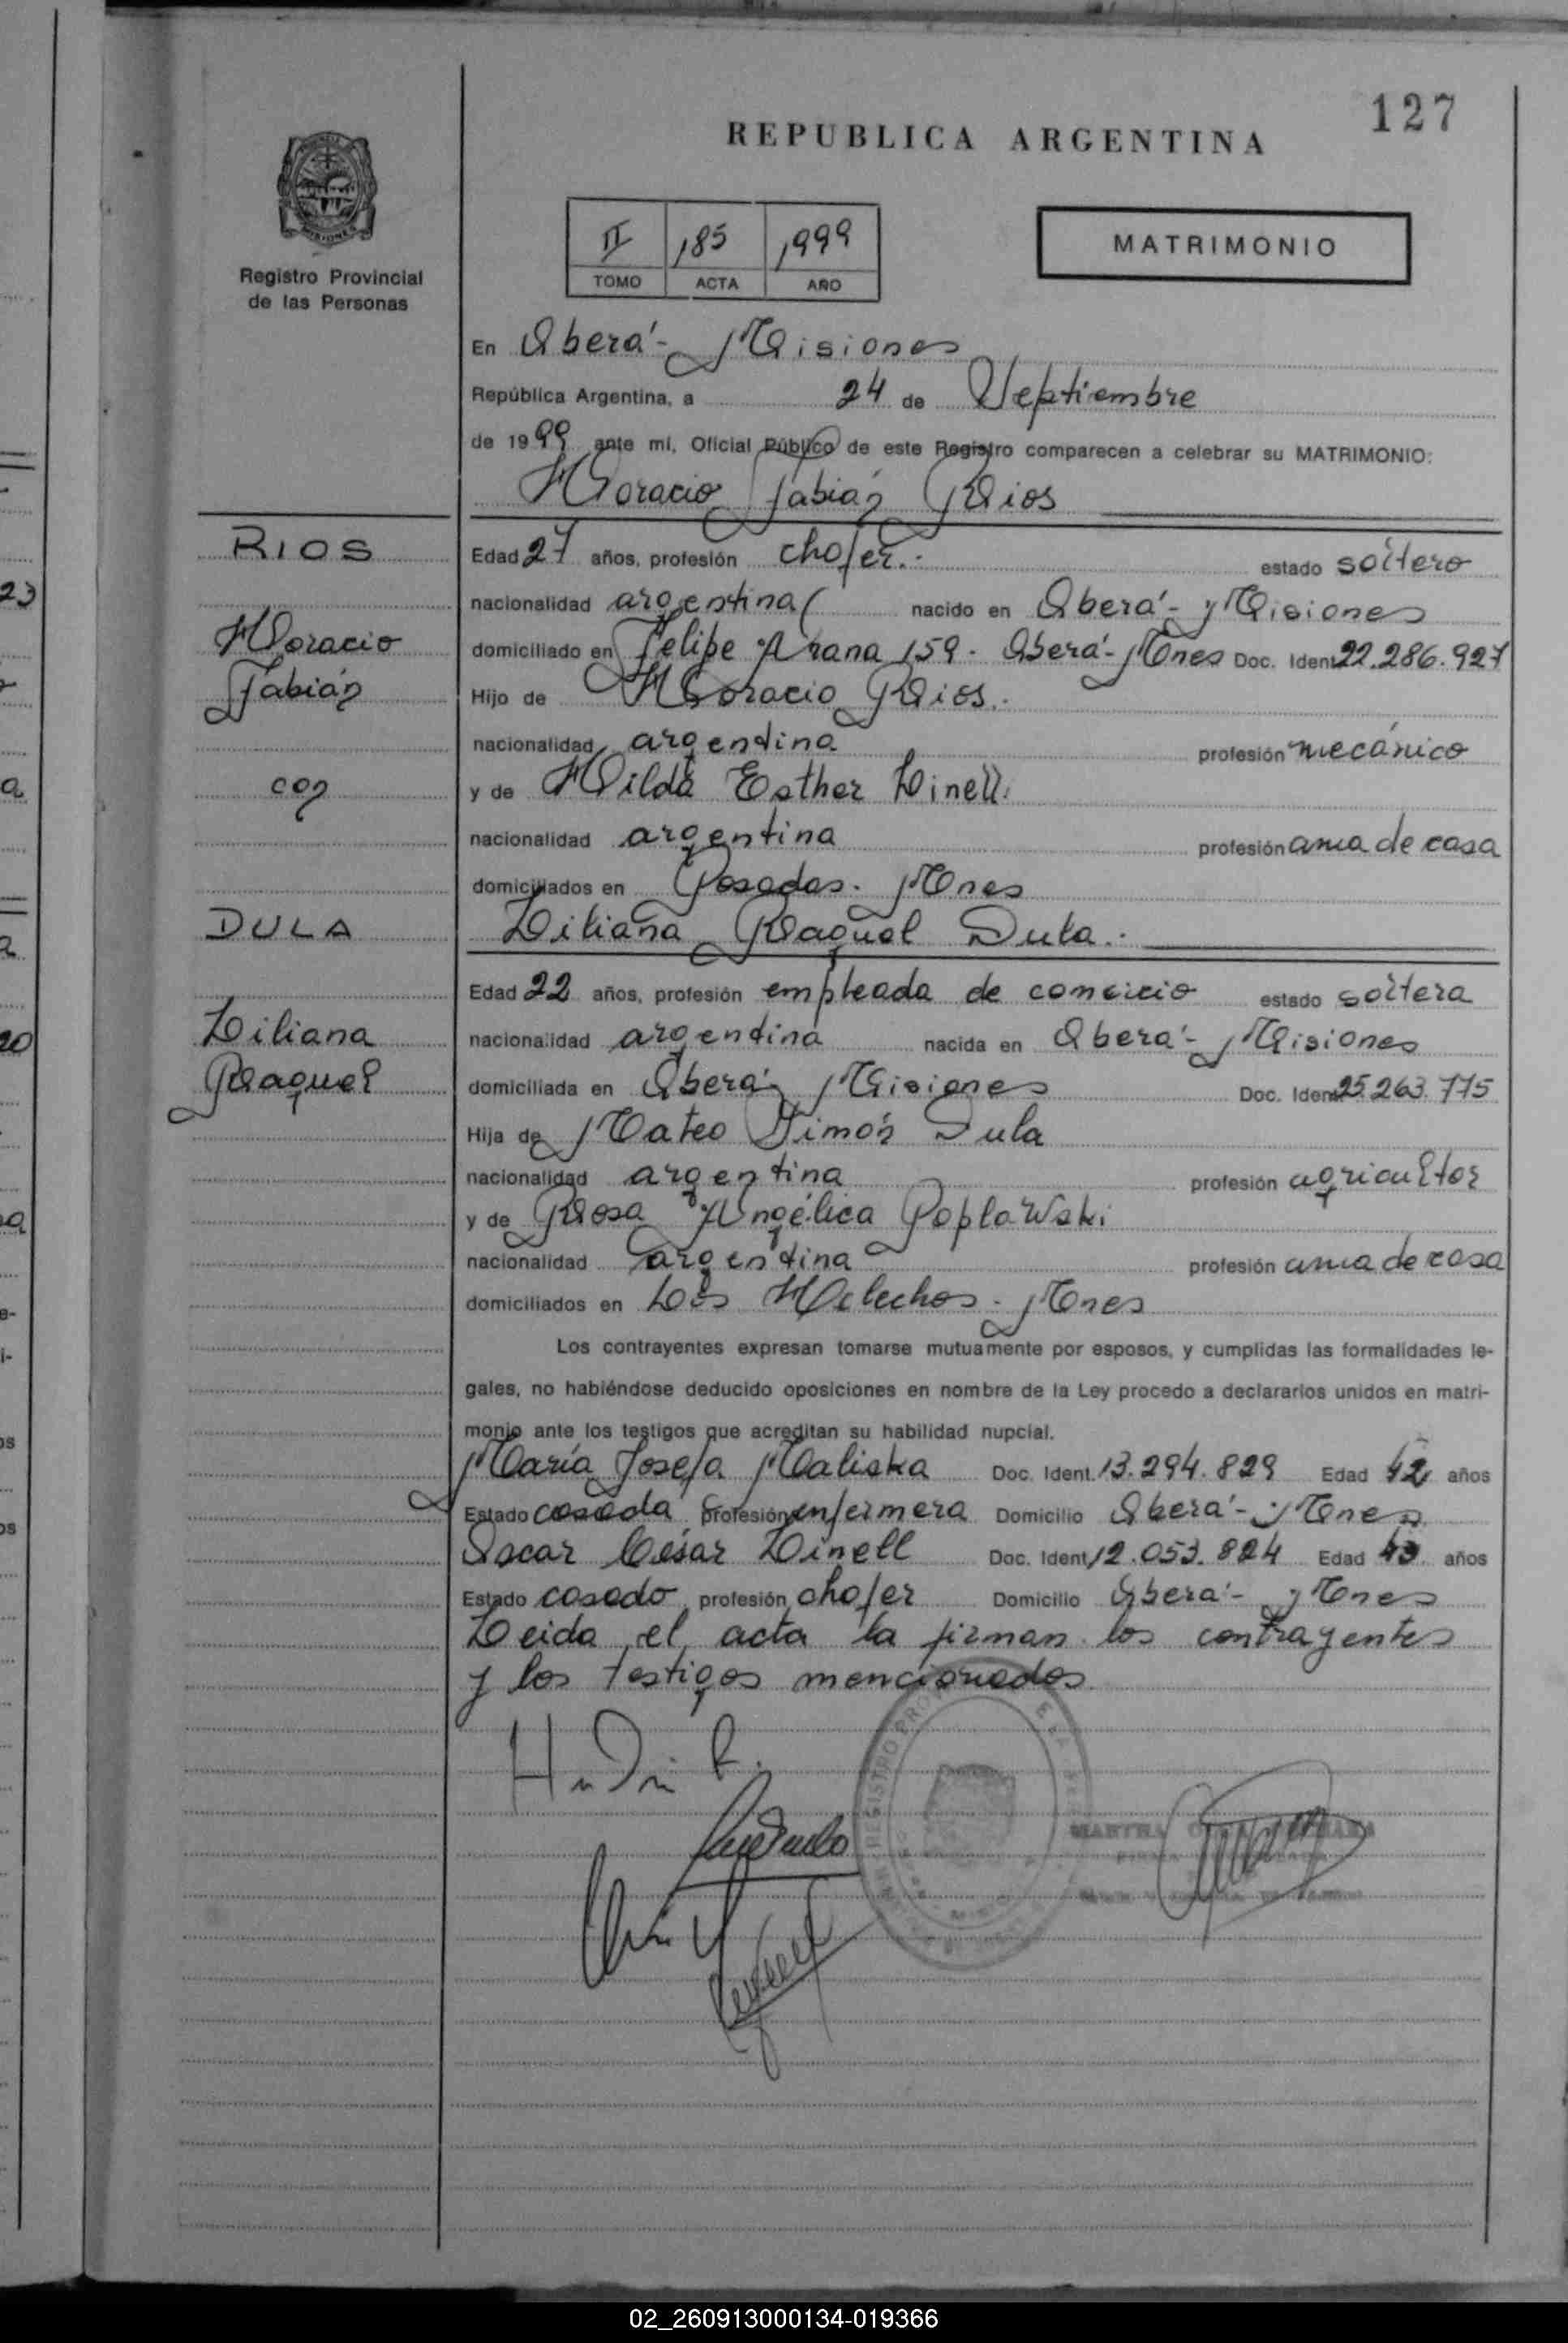 127
REPUBLICA ARGENTINA
II 185 1999
TOMO ACTA AÑO
MATRIMONIO
MISIONES
Registro Provincial
de las Personas
En Oberá - Misiones
República Argentina, a 24 de Septiembre
de 1999 ante mí, Oficial Público de este Registro comparecen a celebrar su MATRIMONIO:
Horacio Fabián Rios
RIOS
Horacio
Fabián
con
DULA
Liliana
Raquel
Edad 27 años, profesión chofer.- estado soltero
nacionalidad argentina nacido en Oberá - Misiones
domiciliado en Felipe Arana 159 - Oberá - Mnes Doc. Ident. 22.286.927
Hijo de Horacio Rios.-
nacionalidad argentina profesión mecánico
y de Hilda Esther Linell.
nacionalidad argentina profesión ama de casa
domiciliados en Posadas - Mnes
Liliana Raquel Dula.-
Edad 22 años, profesión empleada de comercio estado soltera
nacionalidad argentina nacida en Oberá - Misiones
domiciliada en Oberá Misiones Doc. Ident. 25.263.775
Hija de Mateo Simón Dula
nacionalidad argentina profesión agricultor
y de Rosa Angélica Poplawski
nacionalidad argentina profesión ama de casa
domiciliados en Los Helechos - Mnes
Los contrayentes expresan tomarse mutuamente por esposos, y cumplidas las formalidades le-
gales, no habiéndose deducido oposiciones en nombre de la Ley procedo a declararlos unidos en matri-
monio ante los testigos que acreditan su habilidad nupcial.
María Josefa Maliska Doc. Ident. 13.294.829 Edad 42 años
Estado casada profesión enfermera Domicilio Oberá - Mnes
Oscar César Linell Doc. Ident. 12.053.824 Edad 43 años
Estado casado profesión chofer Domicilio Oberá - Mnes
Leida el acta la firman los contrayentes
y los testigos mencionados
REGISTRO
MARTHA
02_260913000134-019366